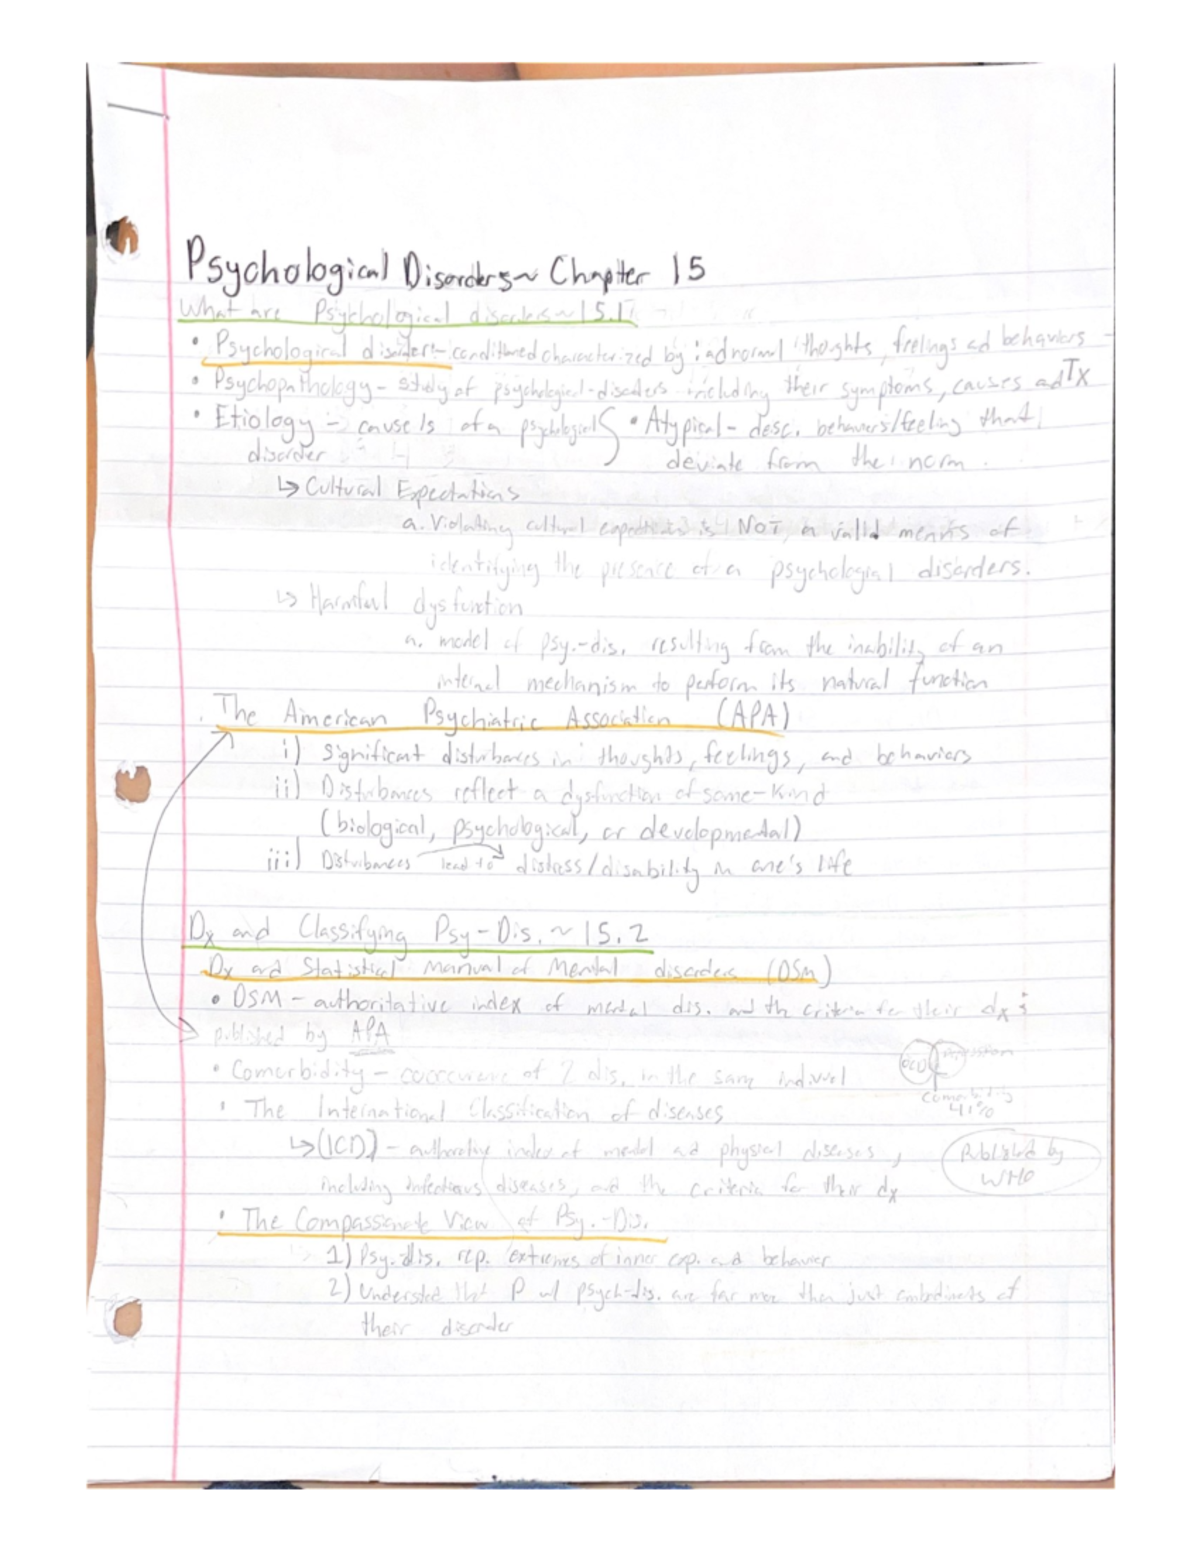 Psychological Disorders~ Chapter 15
What are Psychological disorders~15.1
• Psychological disorder- conditioned characterized by: adnormal thoughts, feelings ad behaviors
• Psychopathology - study of psychological-disorders including their symptoms, causes ad Tx
• Etiology - cause/s of a psychological • Atypical - desc. behaviors/feeling that
disorder deviate from the norm.
↳ Cultural Expectations
a. Violating cultural expectations is NOT a valid means of
identifying the presence of a psychological disorders.
↳ Harmful dysfunction
a. model of psy.-dis. resulting from the inability of an
internal mechanism to perform its natural function
The American Psychiatric Association (APA)
i) Significant disturbances in thoughts, feelings, and behaviors
ii) Disturbances reflect a dysfunction of some-kind
(biological, psychological, or developmental)
iii) Disturbances lead to distress/disability in one's life
Dx and Classifying Psy-Dis. ~ 15.2
Dx and Statistical Manual of Mental disorders (DSM)
• DSM - authoritative index of mental dis. and the criteria for their dx;
published by APA
• Comorbidity - cooccurence of 2 dis. in the same
OCD
comorbidity
41%
• The International Classification of diseases
↳ (ICD) - authorative index of mental ad physical diseases,
including infectious diseases, and the criteria for their dx
Published by
WHO
• The Compassionate View of Psy.-Dis.
1) Psy. dis. rep. extremes of inner exp. and behavior
2) Understand that P w/ psych-dis. are far more than just embodiments of
their disorder